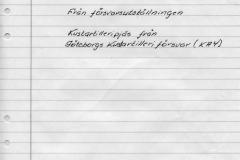 Från försvarsutställningen
Kustartilleripjäs från
Göteborgs Kustartilleriförsvar (KA4)